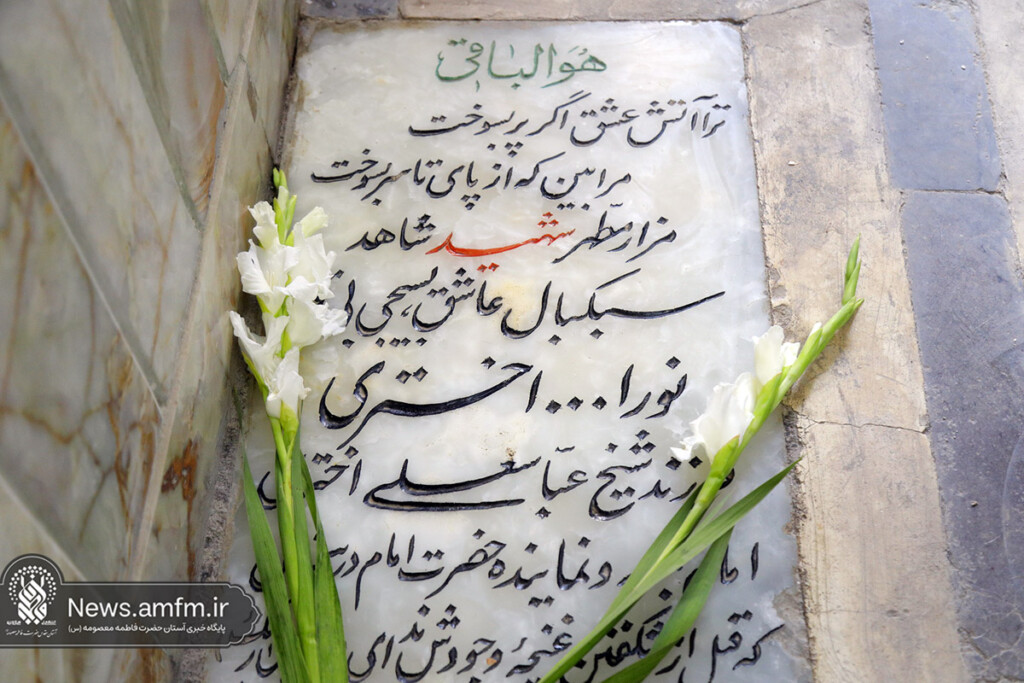 هو الباقی
ترا آتش عشق اگر پر بسوخت
مرا بین که از پای تا سر بسوخت
مزار مطهر شهید شاهد
سبکبال عاشق بسیجی
نورا... اختری
فرزند شیخ عباسعلی
و نماینده حضرت امام در
که قبل از شکفتن غنچه وجودش ندای
News.amfm.ir
پایگاه خبری آستان حضرت فاطمه معصومه (س)